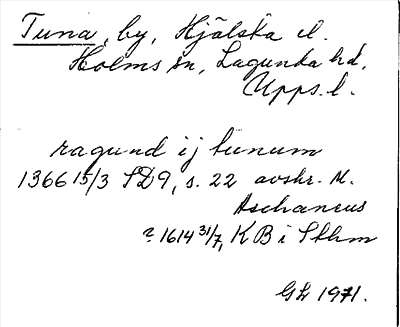 Tuna, by, Hjälsta el.
Holms sn, Lagunda hd,
Upps. l.
ragund ij tunum
1366 15/3 SD9, s. 22 avskr. M.
Aschaneus
? 1614 31/7, KB i Sthm
GL 1971.